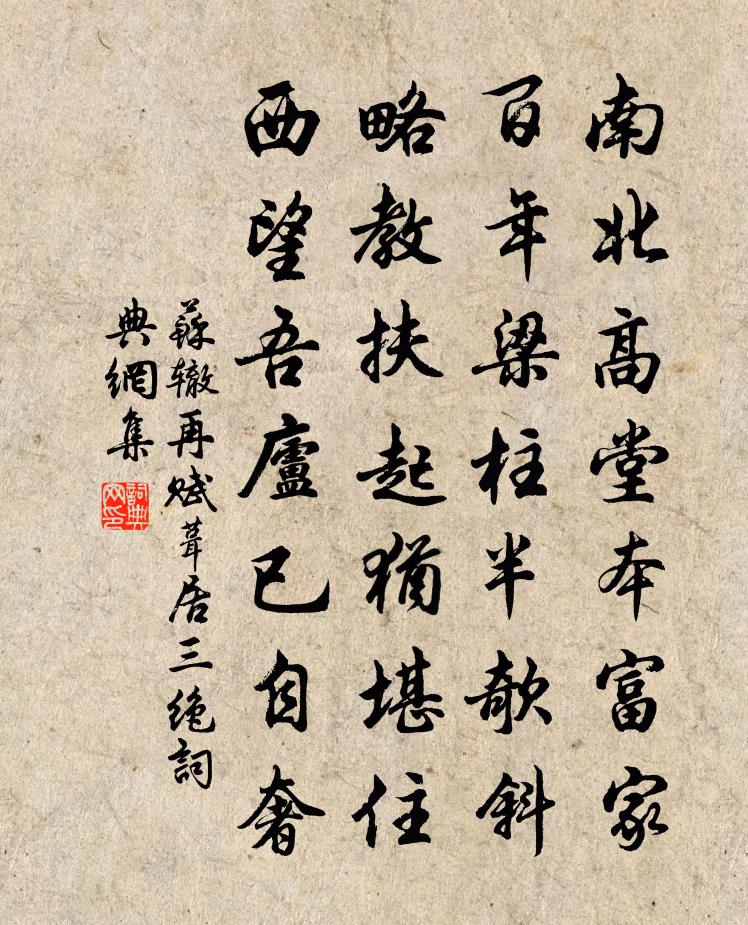 南北高堂本富家
百年梁柱半欹斜
略教扶起猶堪住
西望吾廬已自奢
蘇辙再賦葺居三绝詞
典網集
詞典网印